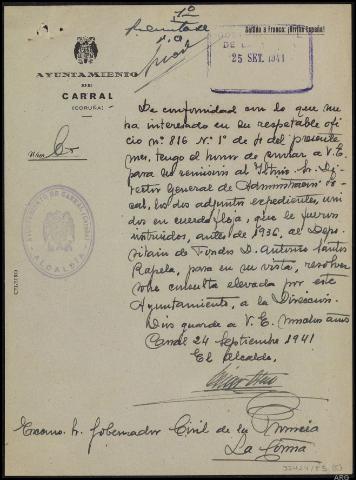 Saludo a Franco: ¡Arriba España!
25 SET. 1941
AYUNTAMIENTO
DE
CARRAL
(CORUÑA)
Núm.
De conformidad con lo que me
ha interesado en su respetable ofi
cio nº 816 N. 1º de 4 del presente
mes, tengo el honor de enviar a V.E.
para su remisión al Iltmo. Sr. Di
rector General de Administración Lo
cal, los dos adjuntos expedientes, uni
dos en cuerda floja, que le fueron
instruidos, antes de 1936, al Depo
sitario de Fondos D. Antonio Santos
Rapela, para en su vista, resolver
una consulta elevada por este
Ayuntamiento, a la Dirección.
Dios guarde a V.E. muchos años
Carral 24 Septiembre 1941
El Alcalde,
AYUNTAMIENTO DE CARRAL (CORUÑA)
ALCALDIA
Excmo. Sr. Gobernador Civil de la Provincia
La Coruña
ARG